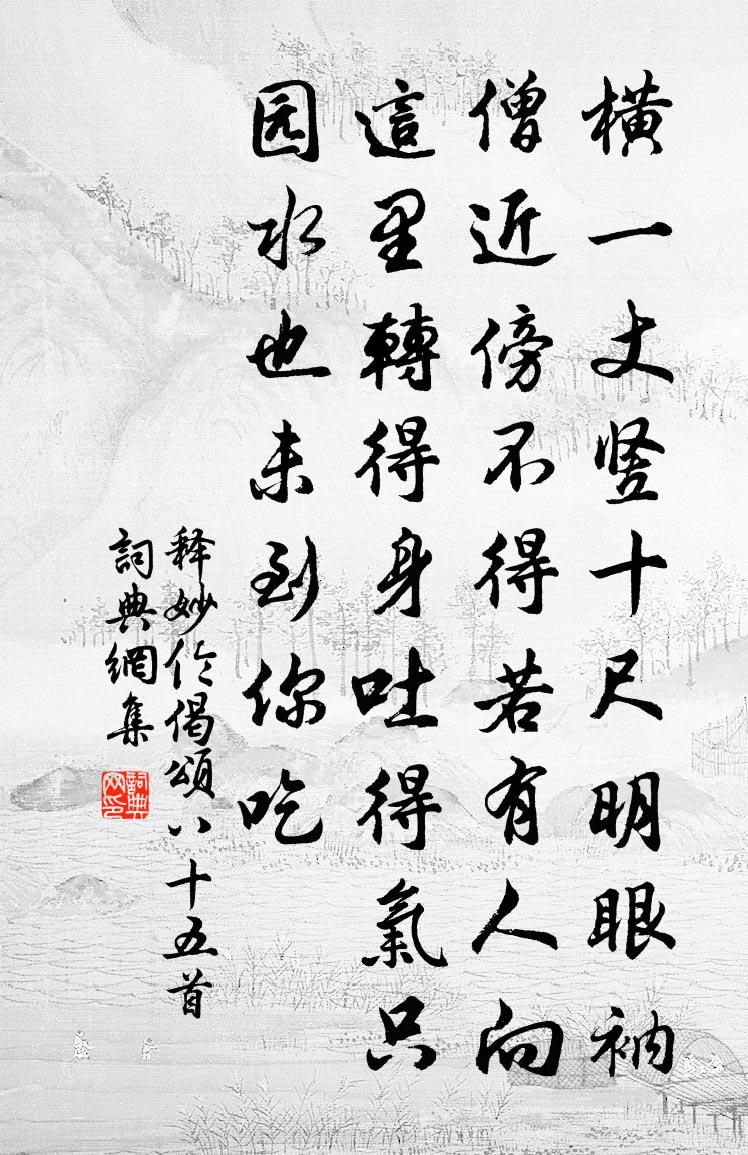 横一丈竖十尺明眼衲
僧近傍不得若有人向
這里轉得身吐得氣只
园水也未到你吃
释妙伦偈頌八十五首
詞典網集
詞典网印